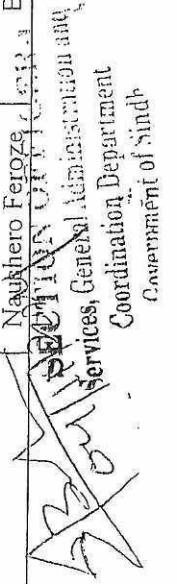 Naushero Feroze
SECTION OFFICER
Services, General Administration and
Coordination Department
Government of Sindh